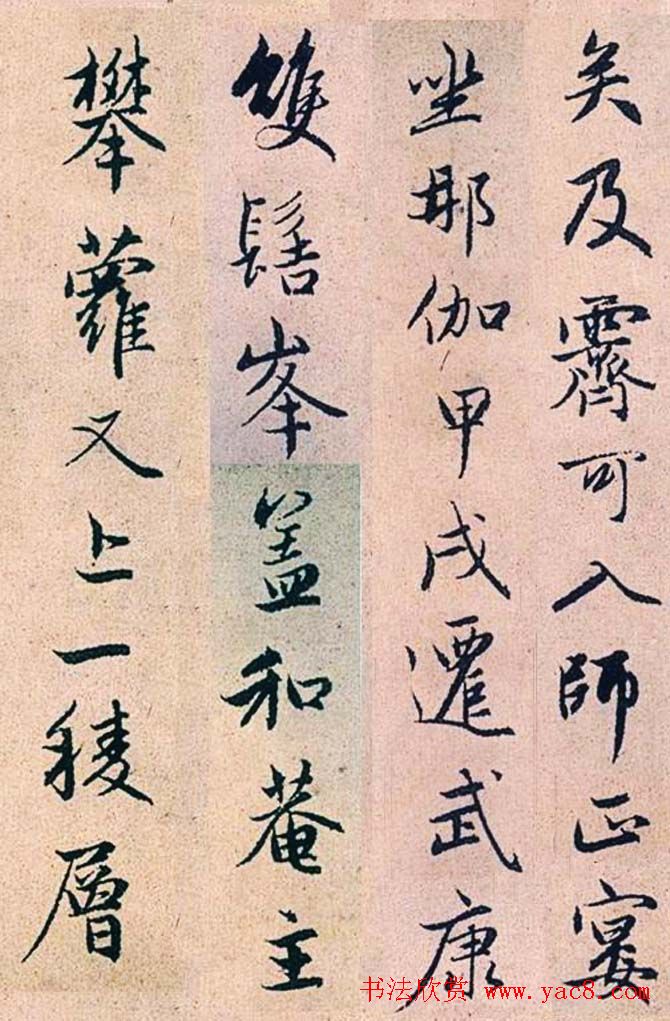 矣及霽可入師正宴
坐那伽甲戌遷武康
雙髻峯盖和菴主
攀蘿又上一稜層
书法欣赏 www.yac8.com